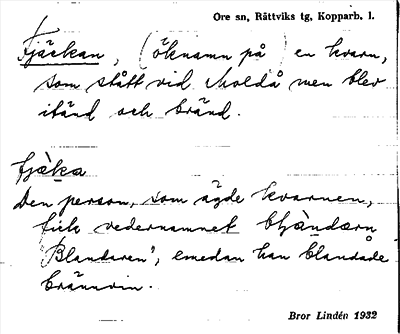 Ore sn, Rättviks tg, Kopparb. l.
Fjäckan, (öknamn på) en kvarn,
som stått vid Moldå men blev
itänd och bränd.
fjɛ̀ka
Den person, som ägde kvarnen,
fick vedernamnet
"Blandaren", emedan han blandade
brännvin.
Bror Lindén 1932